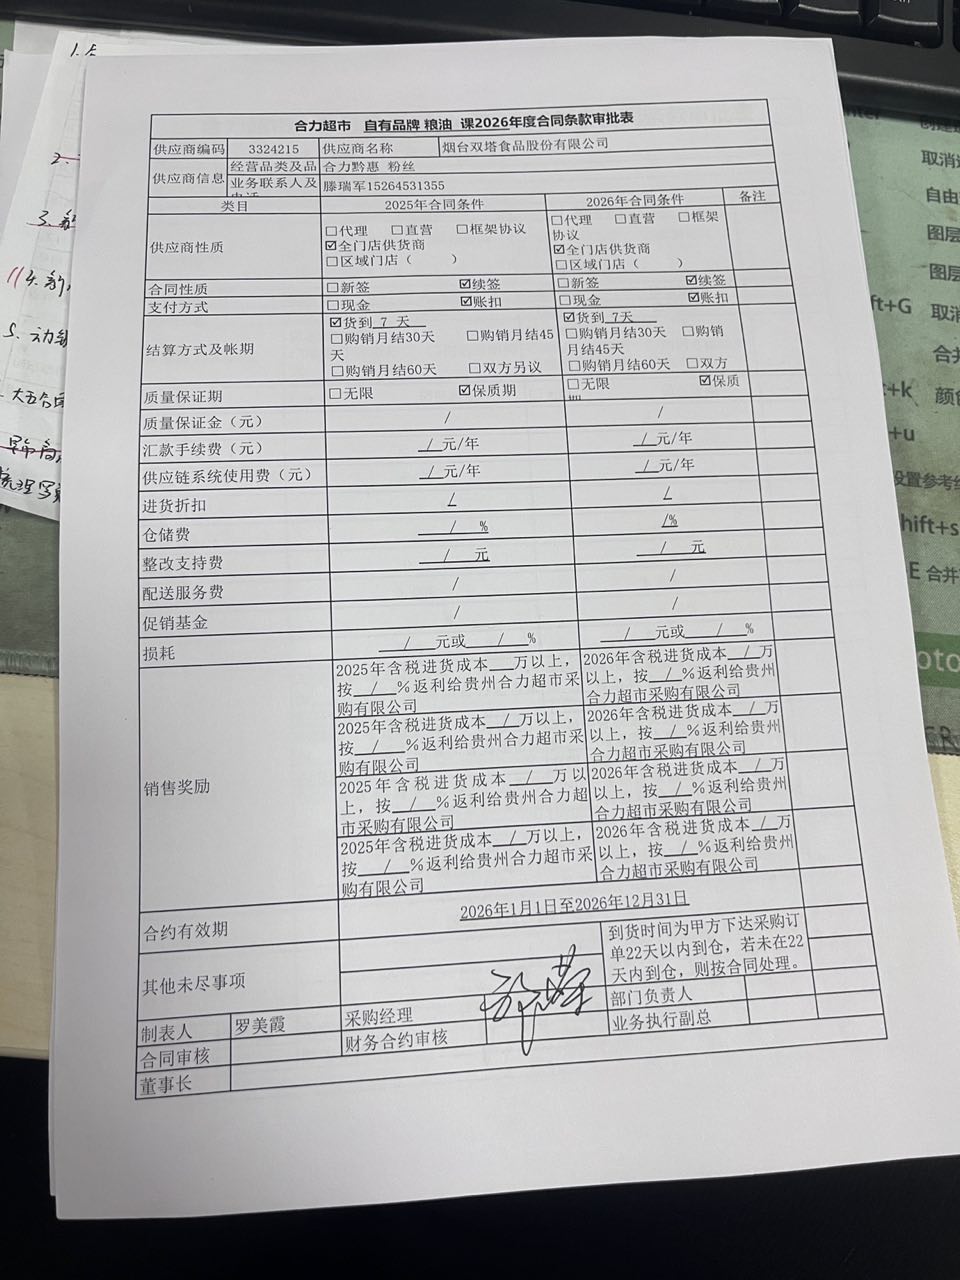 合力超市 自有品牌 粮油 课2026年度合同条款审批表
供应商编码 3324215 供应商名称 烟台双塔食品股份有限公司
供应商信息 经营品类及品 合力黔惠 粉丝
业务联系人及 滕瑞军15264531355
类目 2025年合同条件 2026年合同条件 备注
供应商性质
☐代理 ☐直营 ☐框架协议
☑全门店供货商
☐区域门店（ ）
☐代理 ☐直营 ☐框架
协议
☑全门店供货商
☐区域门店（ ）
合同性质 ☐新签 ☑续签 ☐新签 ☑续签
支付方式 ☐现金 ☑账扣 ☐现金 ☑账扣
结算方式及帐期
☑货到 7 天
☐购销月结30天 ☐购销月结45
天
☐购销月结60天 ☐双方另议
☑货到 7天
☐购销月结30天 ☐购销
月结45天
☐购销月结60天 ☐双方
质量保证期 ☐无限 ☑保质期 ☐无限 ☑保质
质量保证金（元） / /
汇款手续费（元） / 元/年 / 元/年
供应链系统使用费（元） / 元/年 / 元/年
进货折扣 / /
仓储费 / % /%
整改支持费 / 元 / 元
配送服务费 / /
促销基金 / /
损耗 / 元或 / % / 元或 / %
销售奖励
2025年含税进货成本___万以上，
按 / %返利给贵州合力超市采
购有限公司
2026年含税进货成本 / 万
以上，按 / %返利给贵州
合力超市采购有限公司
2025年含税进货成本 / 万以上，
按 / %返利给贵州合力超市采
购有限公司
2026年含税进货成本 / 万
以上，按 / %返利给贵州
合力超市采购有限公司
2025年含税进货成本 / 万以
上，按 / %返利给贵州合力超
市采购有限公司
2026年含税进货成本 / 万
以上，按 / %返利给贵州
合力超市采购有限公司
2025年含税进货成本 / 万以上，
按 / %返利给贵州合力超市采
购有限公司
2026年含税进货成本 / 万
以上，按 / %返利给贵州
合力超市采购有限公司
合约有效期 2026年1月1日至2026年12月31日
其他未尽事项
到货时间为甲方下达采购订
单22天以内到仓，若未在22
天内到仓，则按合同处理。
制表人 罗美霞 采购经理 部门负责人
合同审核 财务合约审核 业务执行副总
董事长
取消
自由
图层
图层
ft+G 取消
合并
+k、颜色
+u
设置参考
hift+s
E 合并